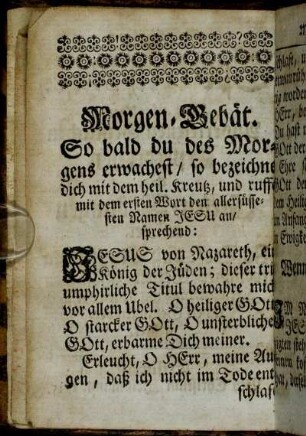 Morgen-Gebät.
So bald du des Mor-
gens erwachest/ so bezeichne
dich mit dem heil. Kreutz, und ruff
mit dem ersten Wort den allersüsse-
sten Namen JESU an/
sprechend:
JESUS von Nazareth, ein
König der Jüden; dieser tri
umphirliche Titul bewahre mich
vor allem Ubel. O heiliger GOtt
O starcker GOtt, O unsterbliche
GOtt, erbarme Dich meiner.
Erleucht, O HErr, meine Au
gen, daß ich nicht im Tode ent
schlaf